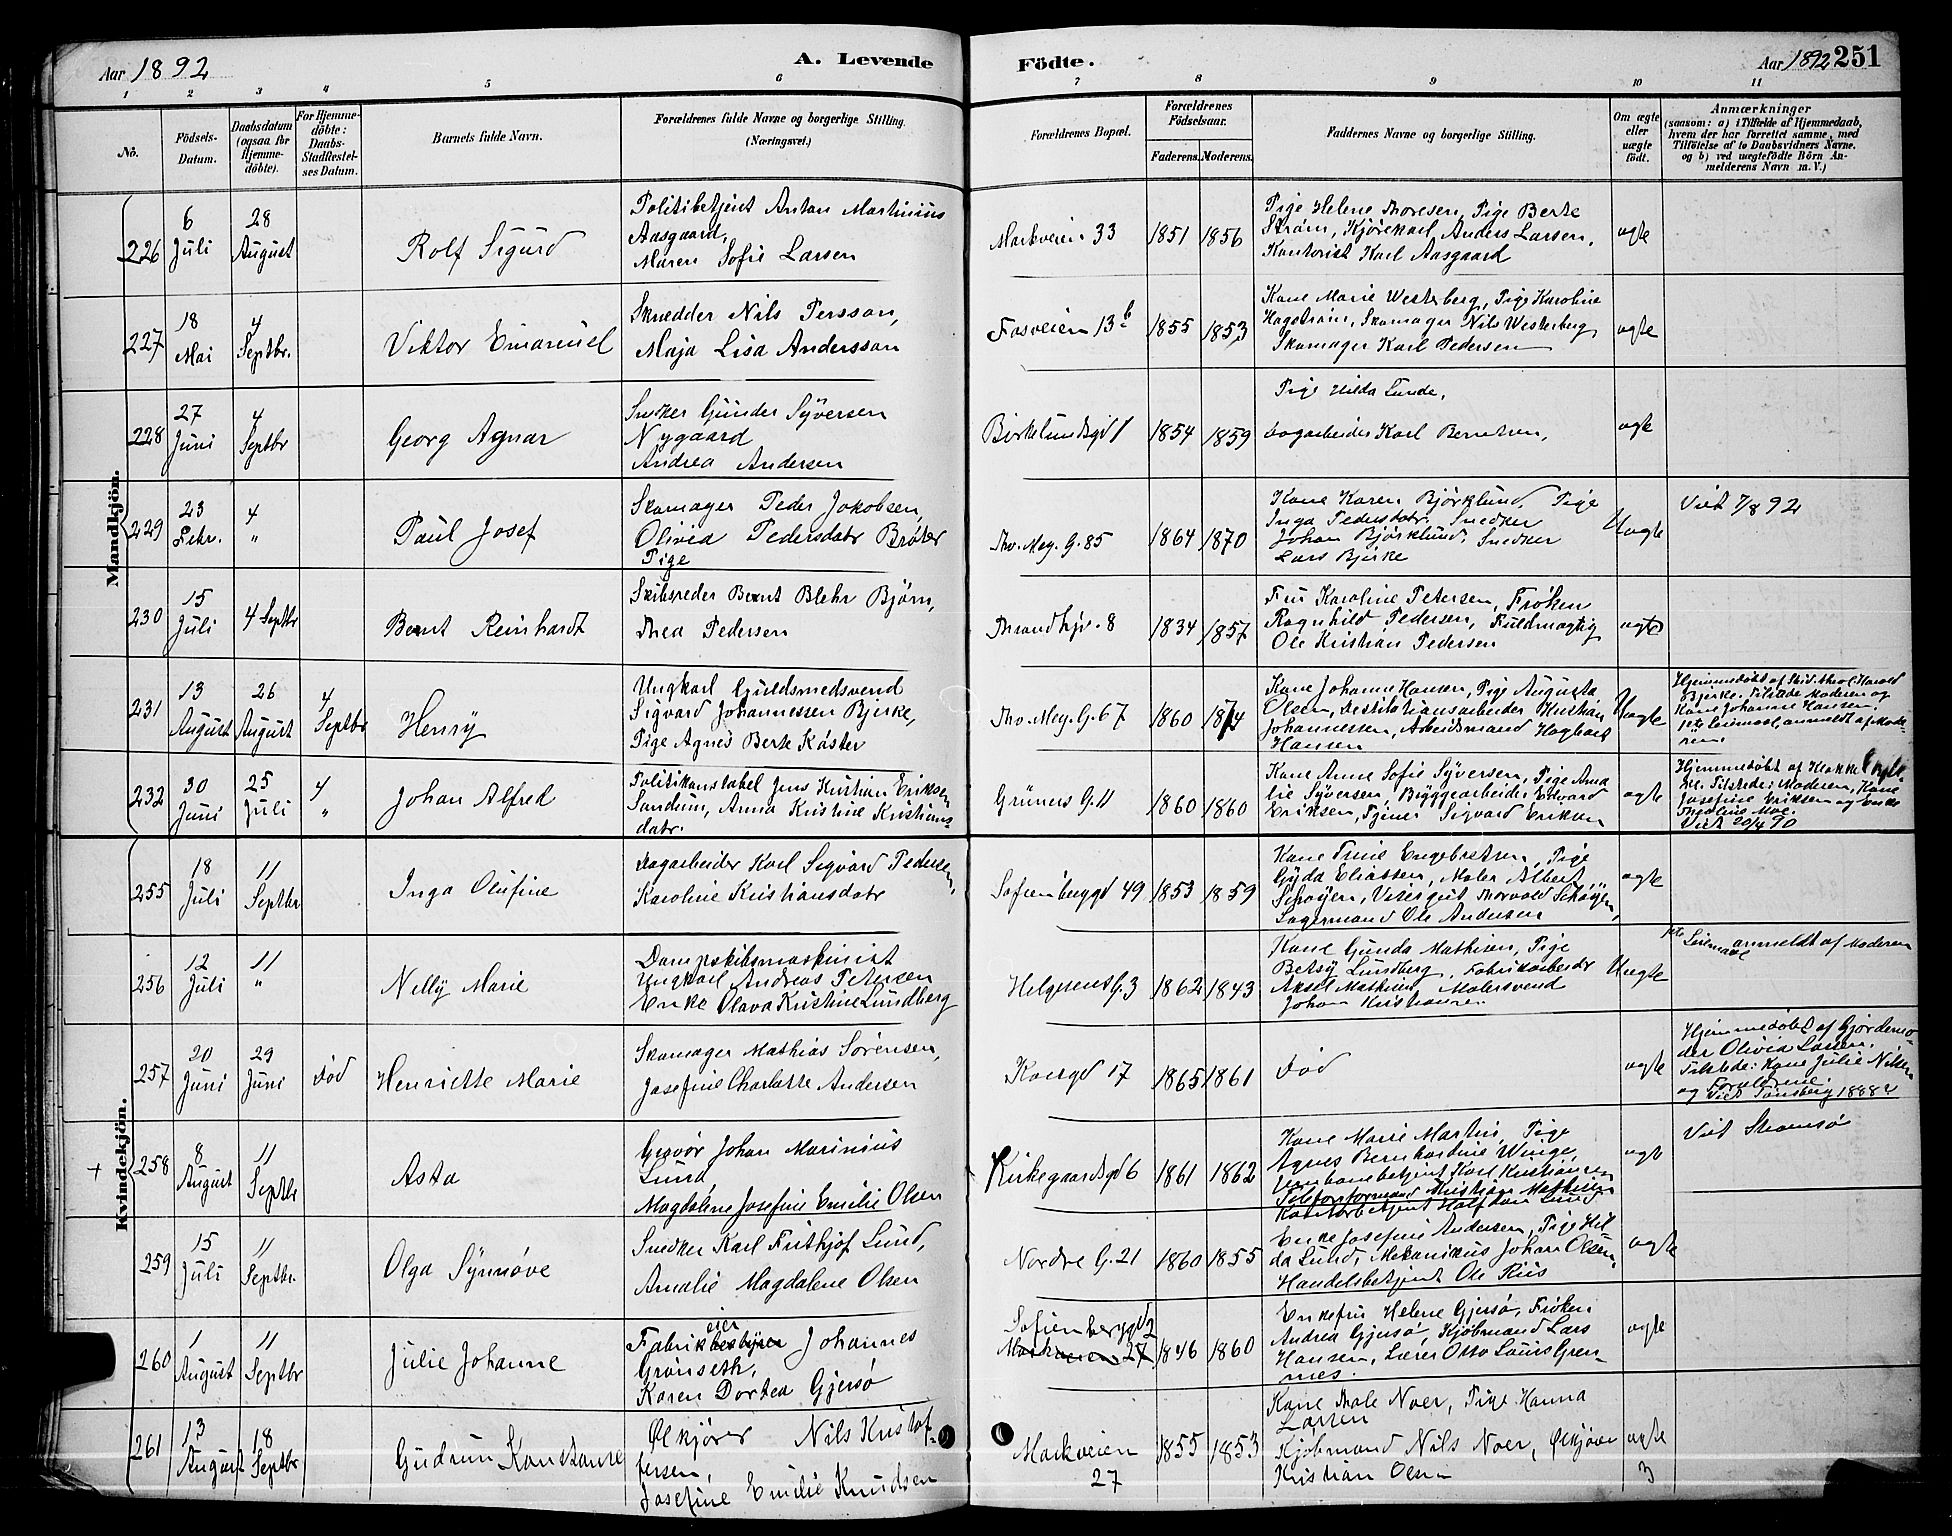 Aar 1892
A. Levende
Födte.
Aar 1892 251
1 2 3 4 5 6 7 8 9 10 11
No.
Födsels-
Datum.
Daabsdatum
(ogsaa for
Hjemme-
döbte).
For Hjemme-
döbte:
Daabs-
Stadfæstel-
ses Datum.
Barnets fulde Navn.
Forældrenes fulde Navne og borgerlige Stilling.
(Næringsvei.)
Forældrenes Bopæl.
Forældrenes
Födselsaar.
Faderens. Moderens.
Faddernes Navne og borgerlige Stilling.
Om ægte
eller
uægte
födt.
Anmærkninger
(saasom: a) i Tilfælde af Hjemmedaab,
hvem der har forrettet samme, med
Tilföielse af to Daabsvidners Navne.
og b) ved uægtefödte Börn An-
melderens Navn m. V.)
Mandkjön.
226
6
Juli
28
August
Rolf Sigurd
Politibetjent Anton Martinius
Aasgaard,
Maren Sofie Larsen
Markveien 33
1851
1856
Pige Helene Thoresen, Pige Berte
Strøm, Kjørekarl Anders Larsen,
Kontorist Karl Aasgaard
ægte
227
18
Mai
4
Septbr.
Viktor Emanuel
Skrædder Nils Persson,
Maja Lisa Andersson
Fosveien 13 b
1855
1853
Kone Marie Westerberg, Pige Karoline
Hagstrøm, Skomager Nils Westerberg
Skomager Karl Pedersen
ægte
228
27
Juni
4
Septbr
Georg Agnar
Snedker Gunder Syversen
Nygaard
Andrea Andersen
Birkelundsgd 1
1854
1859
Pige Hilda Lunde,
Dagarbeider Karl Berntsen,
ægte
229
23
Febr.
4
"
Paul Josef
Skomager Peder Jokobsen,
Olivia Pedersdatr Bråter
Pige
Thv. Mey. G. 85
1864
1870
Kone Karen Bjørklund, Pige
Inga Pedersdatr. Snedker
Johan Bjørklund, Snedker
Lars Bjerke
Uægte
Viet 7/8 92
230
15
Juli
4 Septbr
Bernt Reinhardt
Skibsreder Bernt Blehr Bjørn,
Thea Pedersen
Throndhjv. 8
1834
1857
Fru Karoline Petersen, Frøken
Ragnhild Pedersen, Fuldmægtig
Ole Kristian Pedersen
ægte
231
13
August
26
August
4
Septbr
Henry
Ungkarl Guldsmedsvend
Sigvard Johannessen Bjerke,
Pige Agnes Berte Køster
Thv. Mey. G. 67
1860
1874
Kone Johanne Hansen, Pige Augusta
Olsen, Destilationsarbeider Kristian
Johannessen, Arbeidsmand Hagbart
Hansen
Uægte
Hjemmedøbt af Stud. theol. Harald
Bjerke. Tilstede Moderen og
Kone Johanne Hansen,
1ste Leiemaal, anmeldt af Mode-
ren.
232
30
Juni
25
Juli
4
"
Johan Alfred
Politikonstabel Jens Kristian Eriksen
Sandum, Anna Kristine Kristians-
datr.
Grüners G. 11
1860
1860
Kone Anne Sofie Syversen, Pige Ama
lie Syversen, Byggearbeider Edvard
Eriksen, Tjener Sigvard Eriksen
ægte
Hjemmedøbt af
Tilstede: Moderen, Kone
Josefine Eriksen og Enke
Thedline Moe.
Viet 20/4 90
Kvindekjön.
255
18
Juli
11
Septbr
Inga Olufine
Dagarbeider Karl Sigvard Pedersen,
Karoline Kristiansdatr
Sofienberggd 49
1853
1859
Kone Trine Engebretsen, Pige
Gyda Eliassen, Maler Albert
Schøyen, Visergut Thorvald Schøyen,
Lagermand Ole Andersen
ægte
256
12
Juli
11
"
Nelly Marie
Dampskibsmaskinist
Ungkarl Andreas Petersen
Enke Olava Kristine Lundberg
Helgesens G. 3
1862
1843
Kone Gunda Mathisen, Pige
Betsy Lundberg, Fabrikarbeider
Aksel Mathisen, Malersvend
Johan Kristiansen
Uægte
1ste Leiemaal anmeldt af Moderen
257
20
Juni
29
Juni
død
Henriette Marie
Skomager Mathias Sørensen,
Josefine Charlotte Andersen
Korsgd 17
1865
1861
Død
ægte
Hjemmedøbt af Gjordemo-
der Olivia Larsen.
Tilstede: Kone Julie Nilsen
og Forældrene.
Viet Tønsberg 1888
+
258
8
August
11
Septbr
Asta
Gravør Johan Marinius
Lund
Magdalene Josefine Emilie Olsen
Kirkegaardsgd 6
1861
1862
Kone Marie Martin, Pige
Agnes Bernhardine Winge,
Jernbanebetjent Karl Kristiansen
Telefonformand Kristian Mathisen
Kontorbetjent Halfdan Lund
ægte
Viet Strømsø
259
15
Juli
11
Septbr.
Olga Synnøve
Snedker Karl Frithjof Lund,
Amalie Magdalene Olsen
Nordre G. 21
1860
1855
Enke Josefine Andersen, Pige Hil
da Lund, Mekanikus Johan Olsen,
Handelsbetjent Ole Riis
ægte
260
1
August
11
Septbr
Julie Johanne
Fabrikbestyrer eier Johannes
Grønseth,
Karen Dortea Gjersø
Sofienberggd 2
Markveien 27
1846
1860
Enkefru Helene Gjersø, Frøken
Andrea Gjersø, Kjøbmand Lars
Hansen, Lærer Otto Louis Gren-
nes.
ægte
261
13
August
18
Septbr
Gudrun Konstanse
Ølkjører Nils Kristof-
fersen,
Josefine Emilie Knudsen
Markveien
27
1855
1853
Kone Thale Noer, Pige Hanna
Larsen
Kjøbmand Nils Noer, Ølkjører
Kristian Olsen
ægte
3